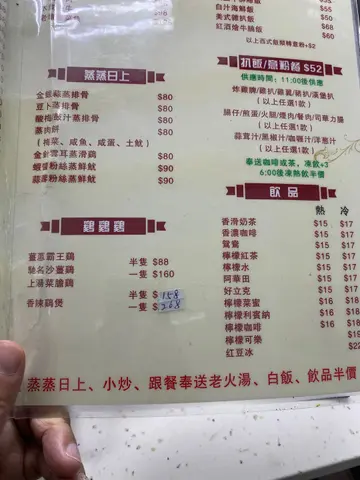 $80
$58
白汁海鮮飯 $55
美式雜扒飯 $50
紅酒燴牛腩飯
以上西式飯類轉意粉+$2
蒸蒸日上
金銀蒜蒸排骨 $80
豆卜蒸排骨 $80
酸梅豉汁蒸排骨 $80
蒸肉餅 $80
(梅菜、咸魚、咸蛋、土魷)
金針雲耳蒸滑鷄 $80
蝦醬粉絲蒸鮮魷 $90
蒜蓉粉絲蒸鮮魷 $90
扒飯/意粉餐 $52
供應時間：11:00後供應
炸雞脾/雞扒/雞翼/豬扒/漢堡扒
(以上任選1款)
腸仔/煎蛋/火腿/煙肉/餐肉/司華力腸
(以上任選1款)
蒜茸汁/黑椒汁/咖喱汁/洋葱汁
(以上任選1款)
奉送咖啡或茶，凍飲+3
6:00後凍熱飲半價
飲品
熱 冷
香滑奶茶 $15 $17
香濃咖啡 $15 $17
鴛鴦 $15 $17
檸檬紅茶 $15 $17
檸檬水 $15 $17
阿華田 $15 $17
好立克 $15 $17
檸檬菜蜜 $16 $18
檸檬利賓納 $16 $18
檸檬咖啡 $16 $18
檸檬可樂
紅豆冰
鷄鷄鷄
薑蔥霸王鷄 半隻 $88
馳名沙薑鷄 一隻 $160
上湯菜膽鷄
香辣鷄煲 半隻 $158
一隻 $268
蒸蒸日上、小炒、跟餐奉送老火湯、白飯、飲品半價